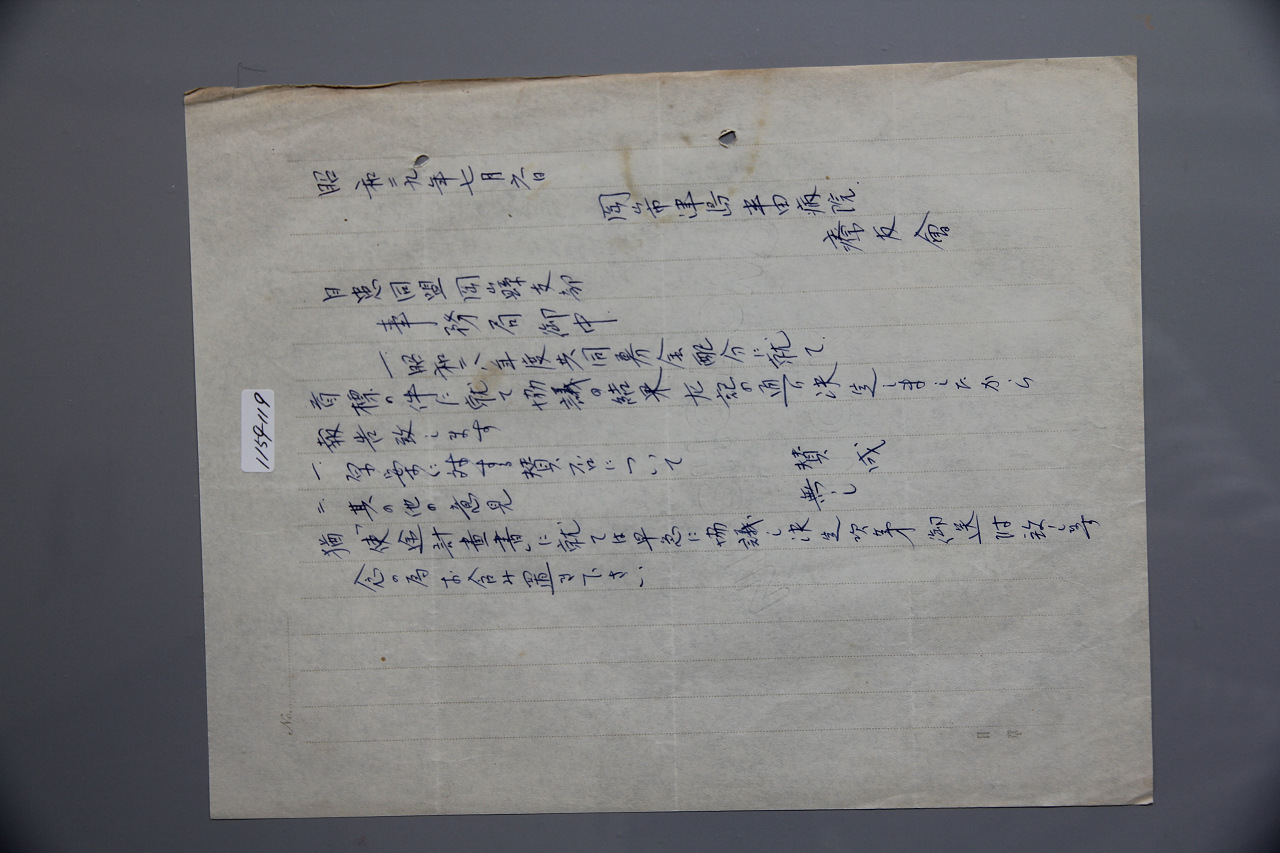 昭和二九年七月九日
岡山市津島 半田病院
療友會
日患同盟岡山縣支部
事務局御中
一昭和二八年度共同募金配分に就て
首標の件に就て協議の結果左記の通り決定しましたから
報告致します
一、 に対する賛否について 賛成
二、其の他の意見 無し
猶「使途計画書」に就ては早急に協議し決定次第御送付致します
念の為お含み置き下さい、
1154-119
No.